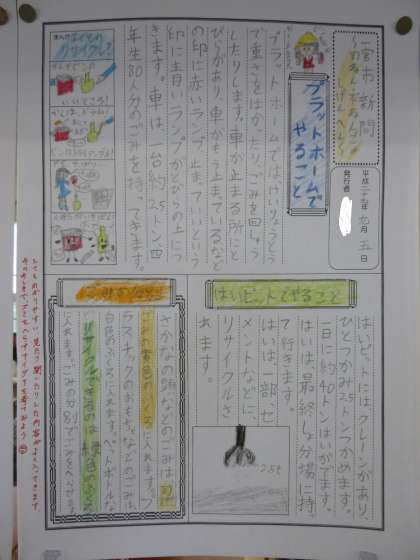 一宮市新聞
平成二十九年九月五日
発行者
プラットホームで
やること
プラットホームではけいりょうとう
で重さをはかったり、ごみを回しゅう
したりします。車が止まる所にと
びらがあり、車がもう止まっているなど
の印に赤いランプ、止まっていいという
印に青いランプがとびらの上につ
きます。車は一台約2.5トン、四
年生80人分のごみを持ってきます。
リサイクル
はいピットでやること
はいピットにはクレーンがあり、
ひとつかみ2.5トンつかめます。
一日に約40トンはいがでます。
はいは最終しょ分場に持っ
て行きます。
はいは一部セ
メントなどに、
リサイクルさ
れます。
2.5t
さかなの頭などのごみは可ねん
ごみの黄色のふくろに入れます。プ
ラスチックのおもちゃなどのごみは、
白色のふくろに入れます。ペットボトルな
どリサイクルできるのは緑色のふくろ
に入れます。ごみの分別でごみをへらせます。
とてもわかりやすい。見たり聞いたりした内容がよく入ってきます。